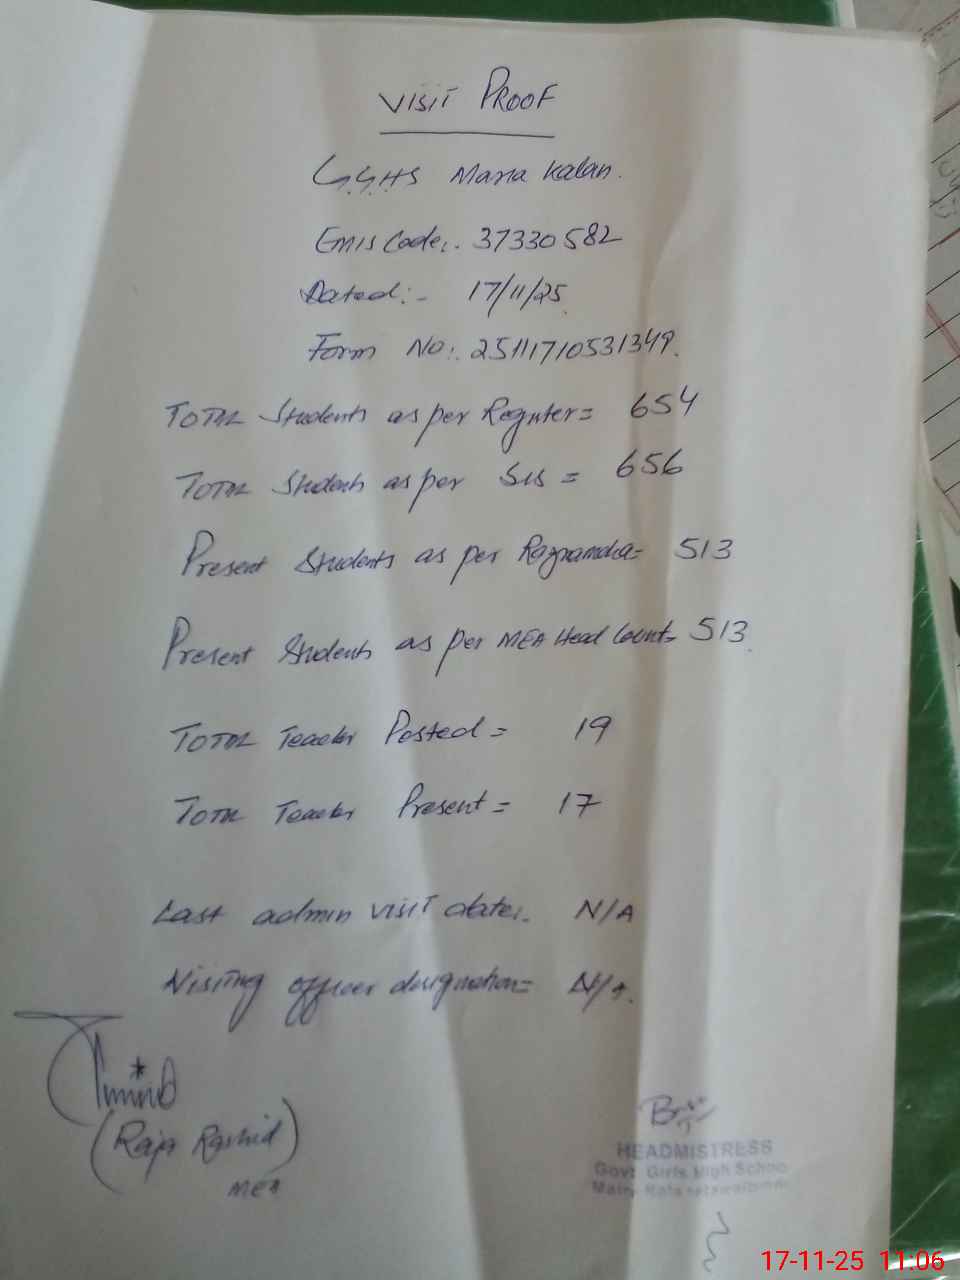 VISIT PROOF
G.G.H.S Maira Kalan.
Emis Code:. 37330582
Dated:- 17/11/25
Form No:. 25111710531349.
TOTAL Students as per Register= 654
TOTAL Students as per SIS = 656
Present Students as per Roznamcha= 513
Present Students as per MEA Head Count= 513.
TOTAL Teacher Posted = 19
TOTAL Teacher Present = 17
Last admin visit date:. N/A
Visiting officer designation= N/A.
(Raja Rashid)
MEA
HEADMISTRESS
Govt Girls High School
17-11-25 11:06